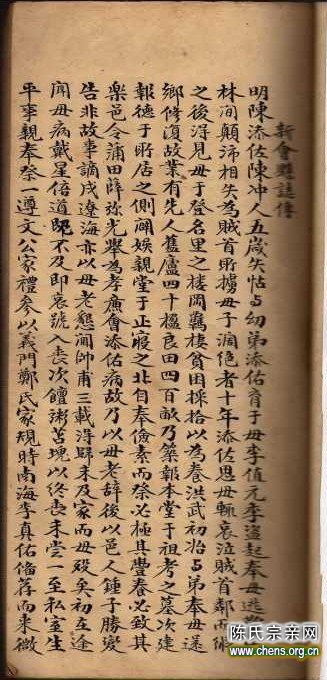 新會縣誌傳
明陳添佐陳冲人五歲失怙与幼弟添佑育于母李值元季盜起奉母逃
林间顛沛相失為賊首所擄母子濶絕者十年添佐思母輒哀泣賊首鄰而
之後得見母于登名里之棲岡羈棲貧困採拾以為養洪武初始与弟奉母還
鄉修復故業有先人舊廬四十楹良田四百畝乃築報本堂于祖考之墓次建
報德于所居之側闢娛親堂于正寢之北自奉儉素而祭必極其豐養必致其
樂邑令蒲田薛弥光舉為孝廉會添佑病故乃以母老辞後以邑人鍾子勝變
告非故事謫戍遼海亦以母老懇閫帥甫三載得歸未及家而母殁矣初在途
闻母病戴星倍道既不及即哀號入喪次饘粥苫塊以终喪未嘗一至私室生
平事親奉祭一遵文公家禮參以義門鄭氏家規時南海李真佑偹荐而未徵
陈氏宗亲网
www.chens.org.cn